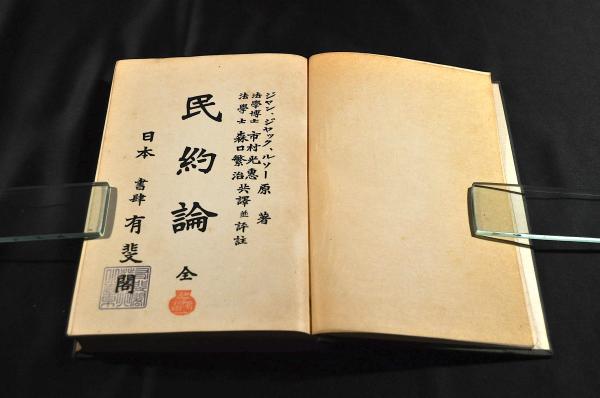 ジャン、ジャック、ルソー 原著
法學博士 市村光惠
法學士 森口繁治 共譯並評註
民約論 全
日本 書肆 有斐閣